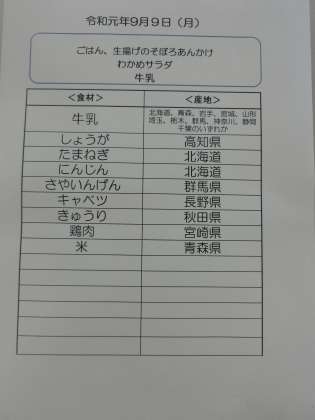 令和元年9月9日（月）
ごはん、生揚げのそぼろあんかけ
わかめサラダ
牛乳
＜食材＞ ＜産地＞
牛乳 北海道、青森、岩手、宮城、山形
埼玉、栃木、群馬、神奈川、静岡
千葉のいずれか
しょうが 高知県
たまねぎ 北海道
にんじん 北海道
さやいんげん 群馬県
キャベツ 長野県
きゅうり 秋田県
鶏肉 宮崎県
米 青森県